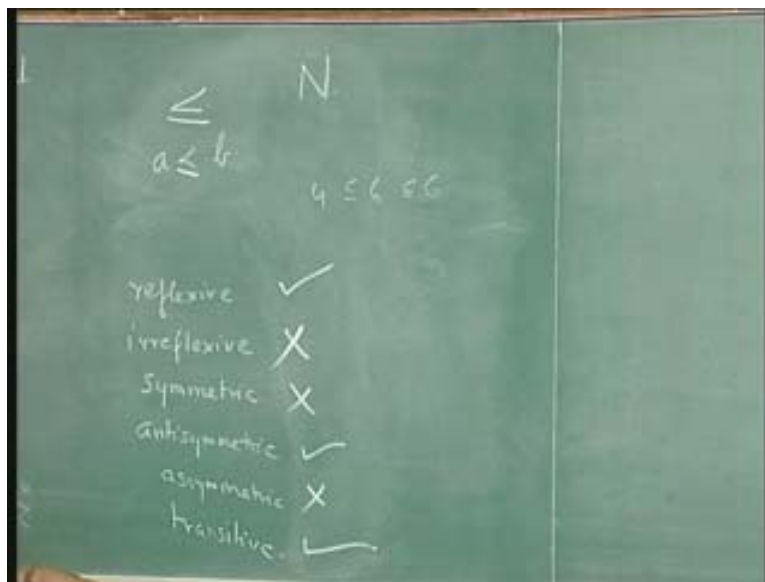 ≤ N
a ≤ b
4 ≤ 6 ≤ 6
reflexive ✓
irreflexive X
symmetric X
antisymmetric ✓
assymmetric X
transitive. ✓